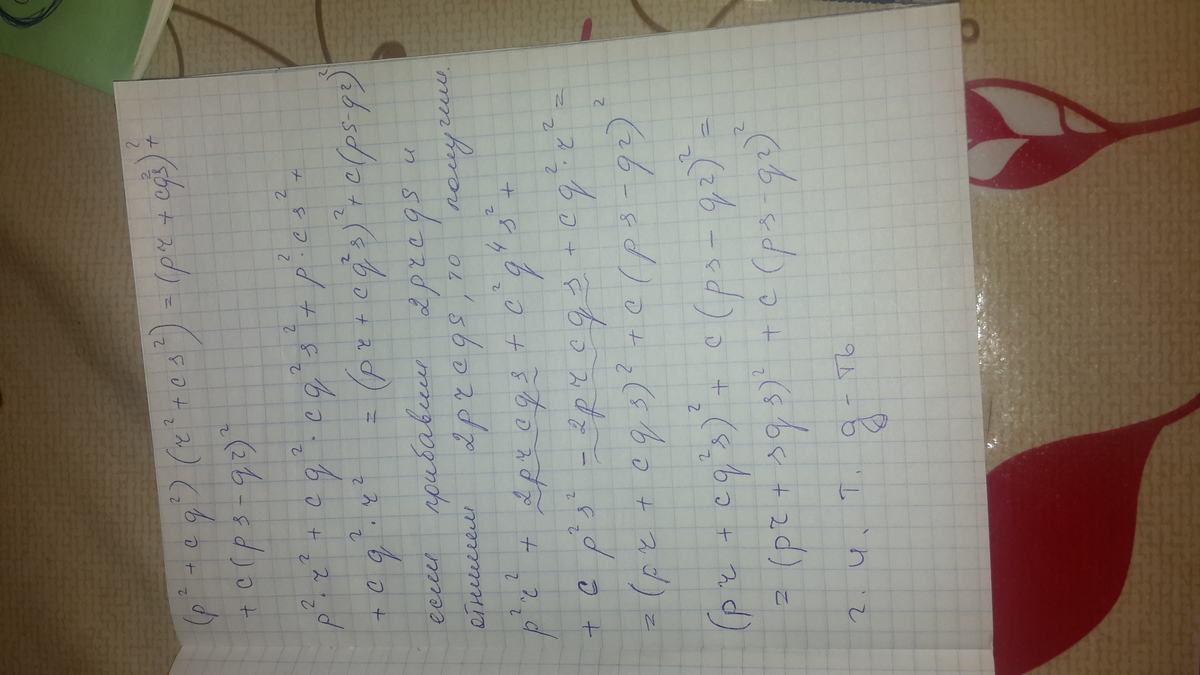 (p² + cq²)(r² + cs²) = (pr + cq²s)² +
+ c(ps - qr)²
p²·r² + cq²·cq²s² + p²·cs² +
+ cq²·r² = (pr + cq²s)² + c(ps-qr)²
если прибавим 2prcqs и
отнимем 2prcqs, то получим.
p²r² + 2prcqs + c²q⁴s² +
+ cp²s² - 2prcqs + cq²·r² =
= (pr + cqs)² + c(ps - qr)²
(pr + cq²s)² + c(ps - qr)² =
= (pr + sqs)² + c(ps - qr)²
г. ч. т. д-ть